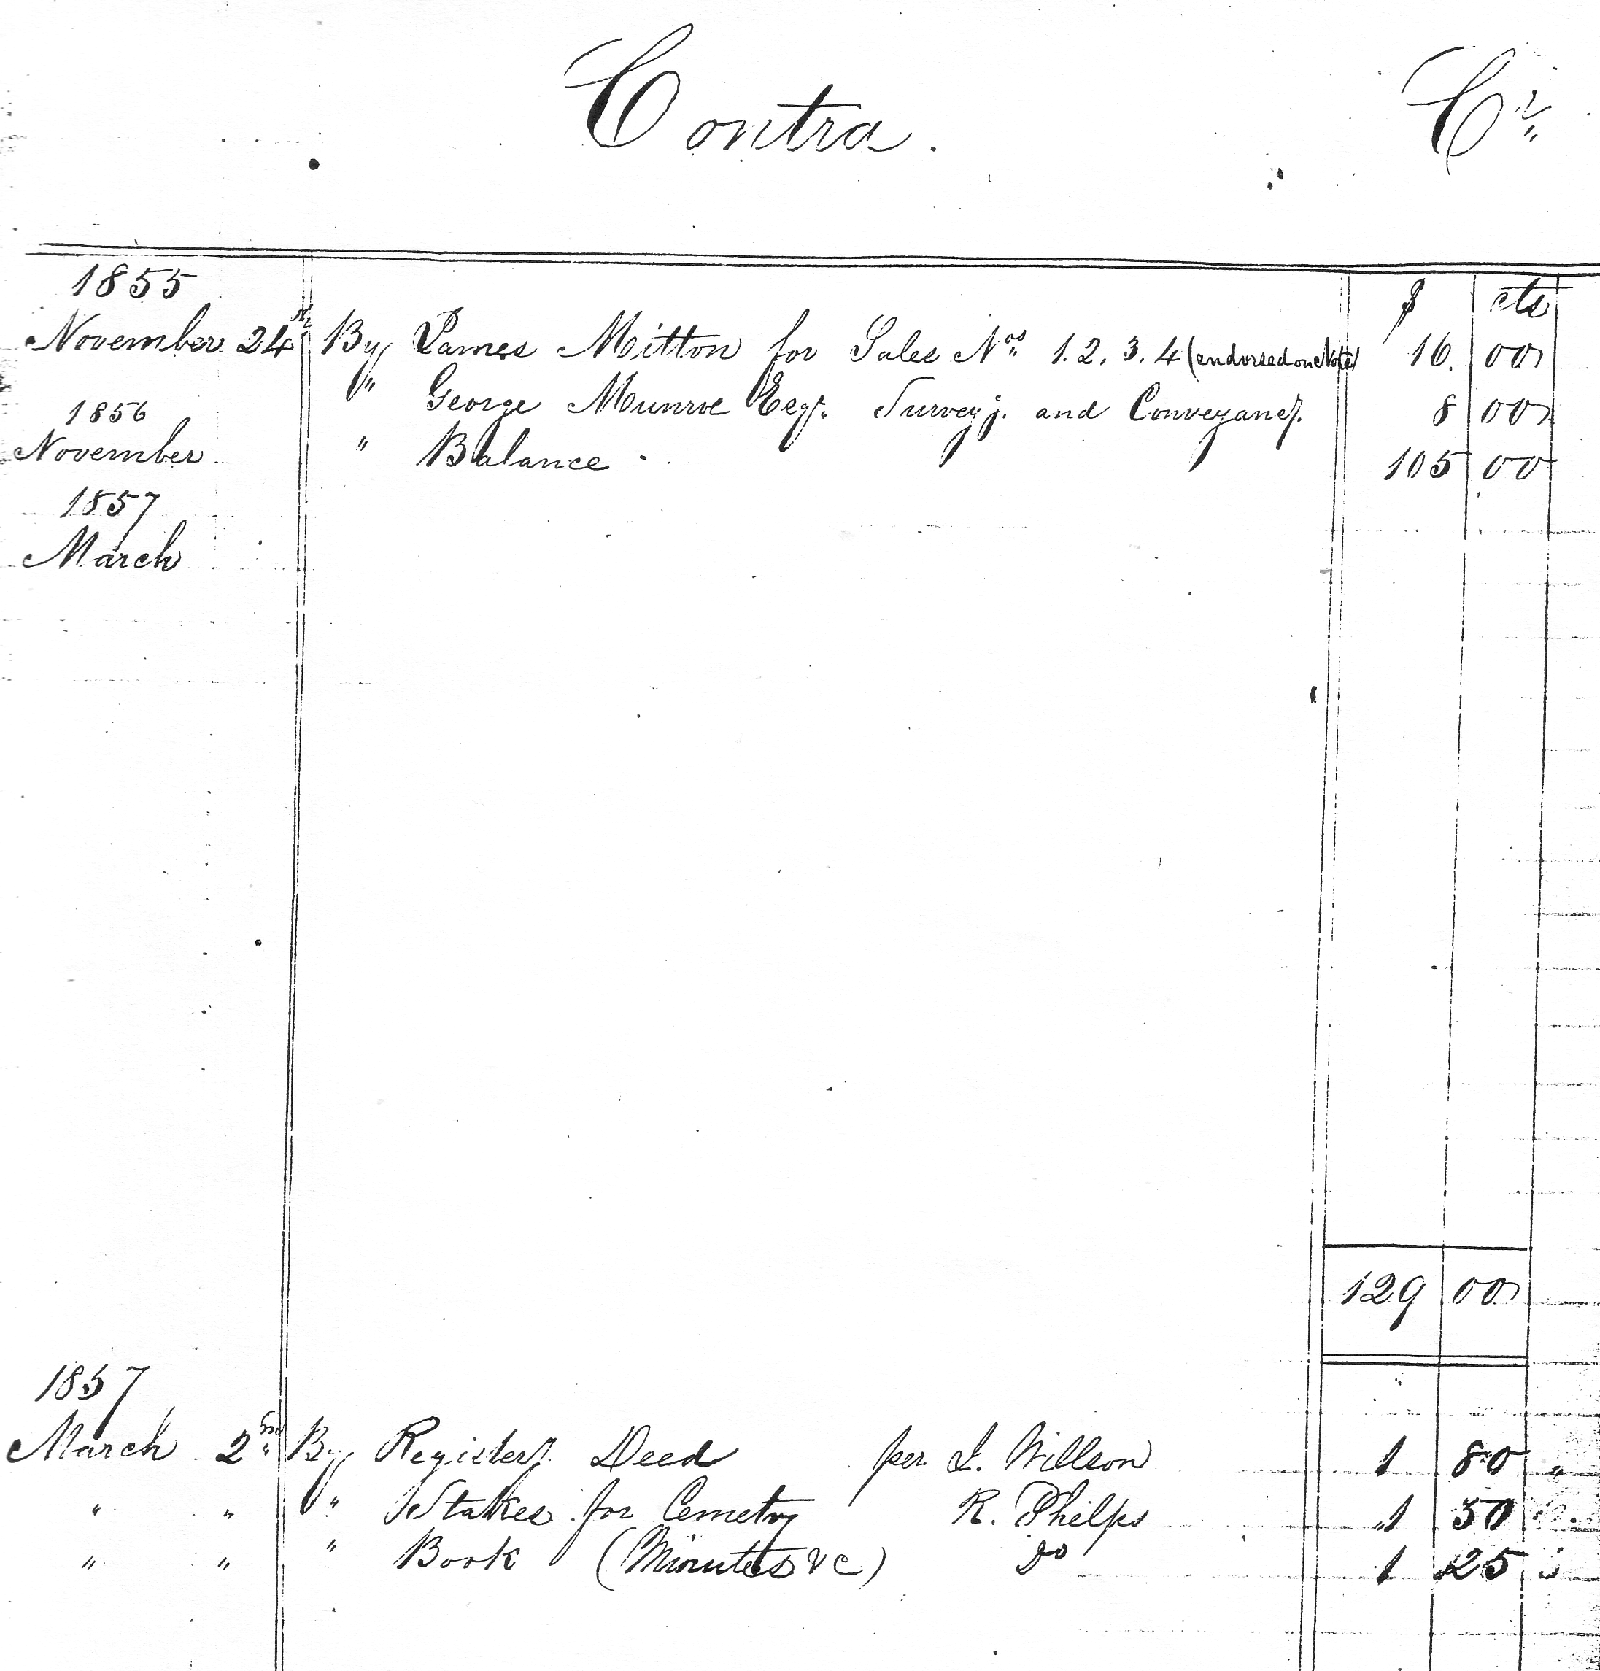 Contra. Cr
1855 $ cts
November 24th By James Mitton for Sales Nos 1. 2. 3. 4 (endorsed one Note) 16. 00
" George Munroe Esqr. Surveyg. and Conveyancg. 8 00
1856
November " Balance 105 00
1857
March
129 00
1857
March 2nd By Registerg. Deed per I. Willson 1 80
" " " Stakes for Cemetry R. Phelps 1 50
" " " Book (Minutes &c) Do 1 25